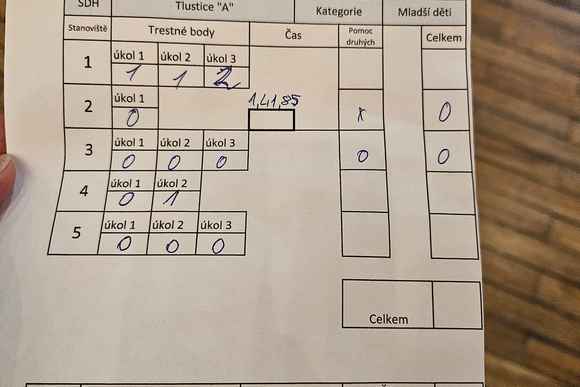 SDH Tlustice "A" Kategorie Mladší děti
Stanoviště Trestné body Čas Pomoc druhých Celkem
1 úkol 1 úkol 2 úkol 3
1 1 2
2 úkol 1 1,41,85
0 x 0
3 úkol 1 úkol 2 úkol 3
0 0 0 0 0
4 úkol 1 úkol 2
0 1
5 úkol 1 úkol 2 úkol 3
0 0 0
Celkem